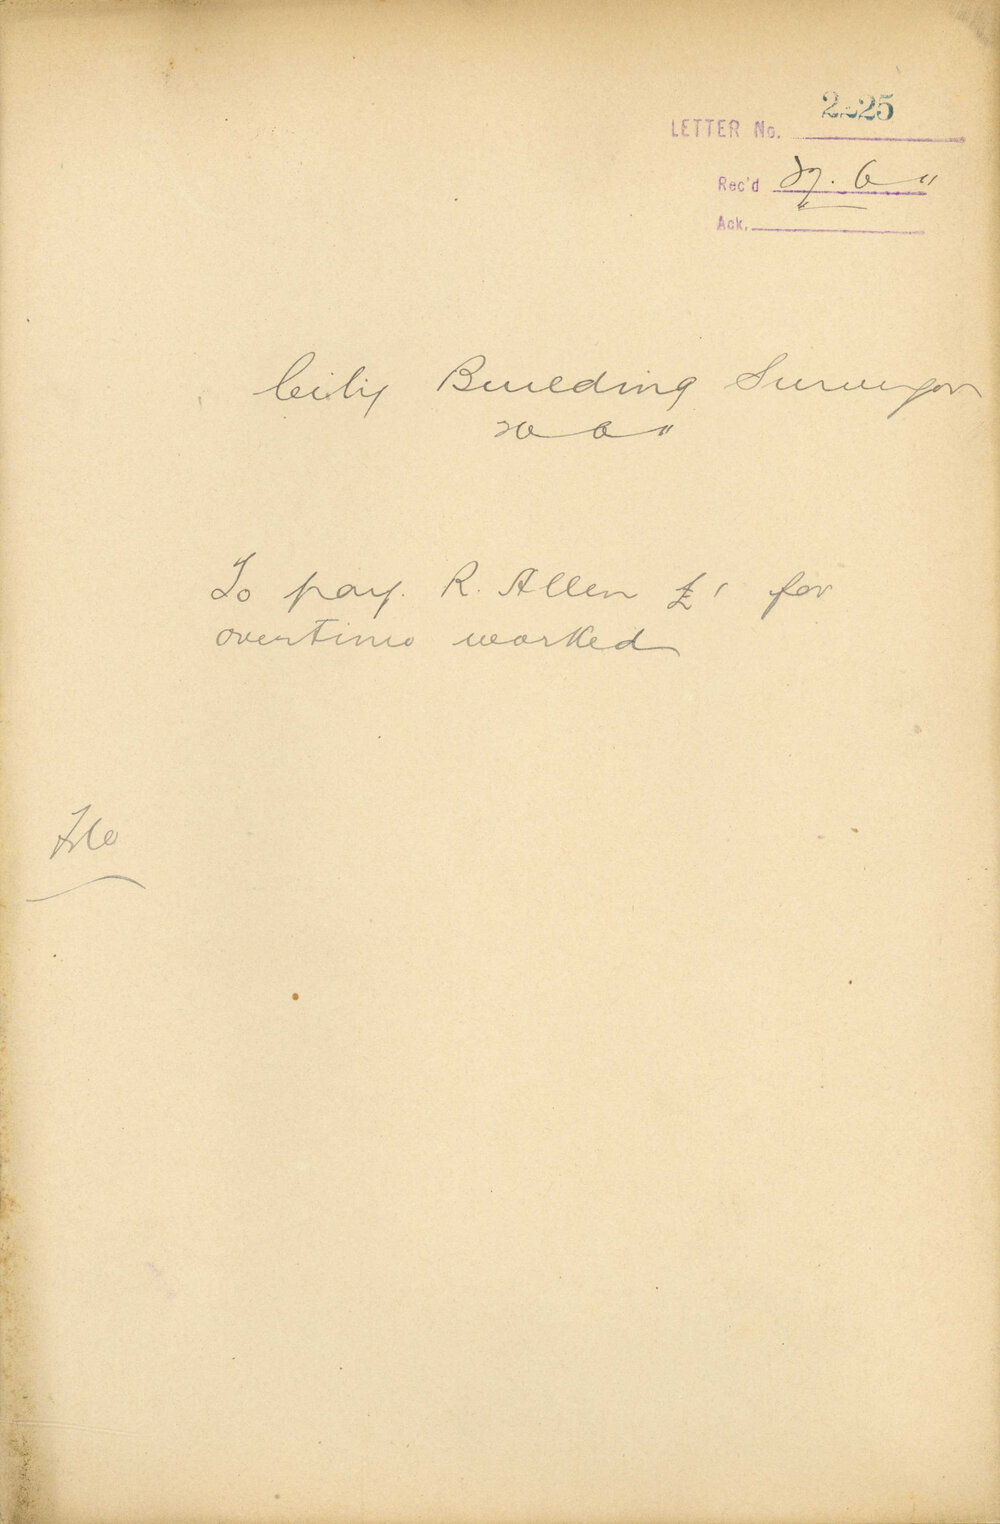 LETTER No. 2225
Rec'd 27.6 "
Ack.
City Building Surveyor
6 "
To pay. R. Allen £1 for
overtime worked
File